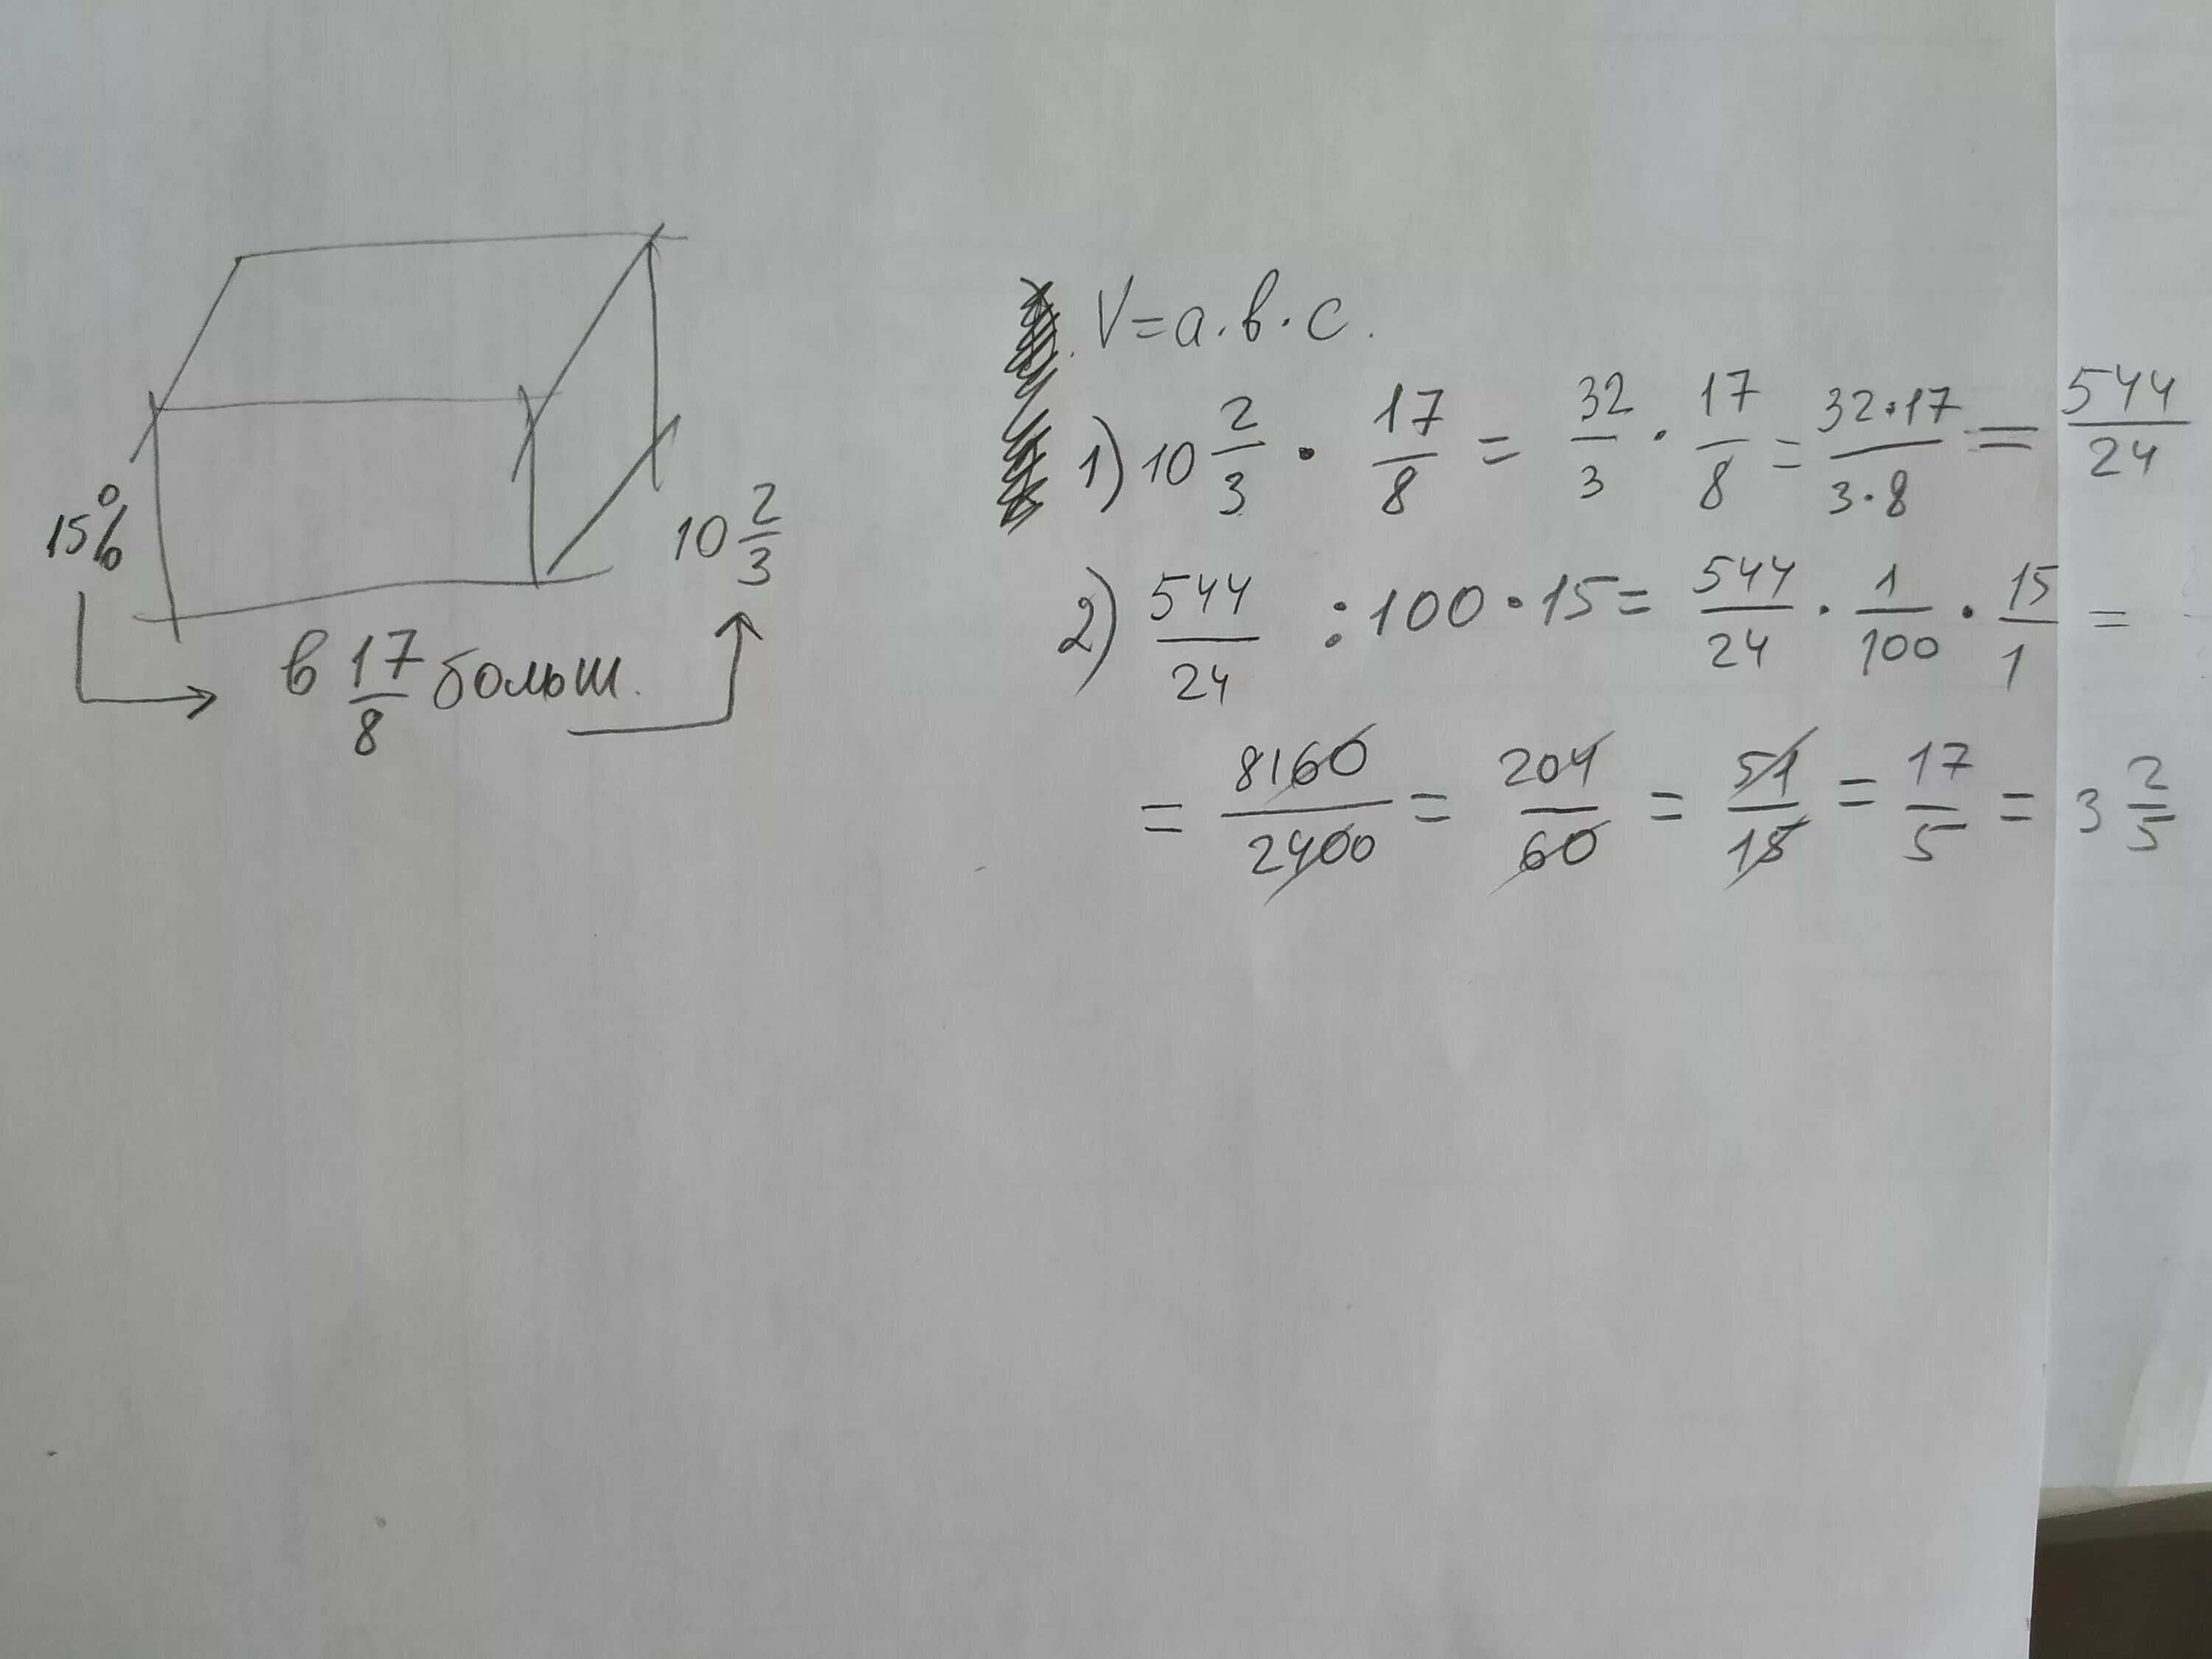 15%
10 2/3
в 17/8 больш.
V=a·в·c.
1) 10 2/3 · 17/8 = 32/3 · 17/8 = 32·17/3·8 = 544/24
2) 544/24 : 100 · 15 = 544/24 · 1/100 · 15/1 =
= 8160/2400 = 204/60 = 51/15 = 17/5 = 3 2/5